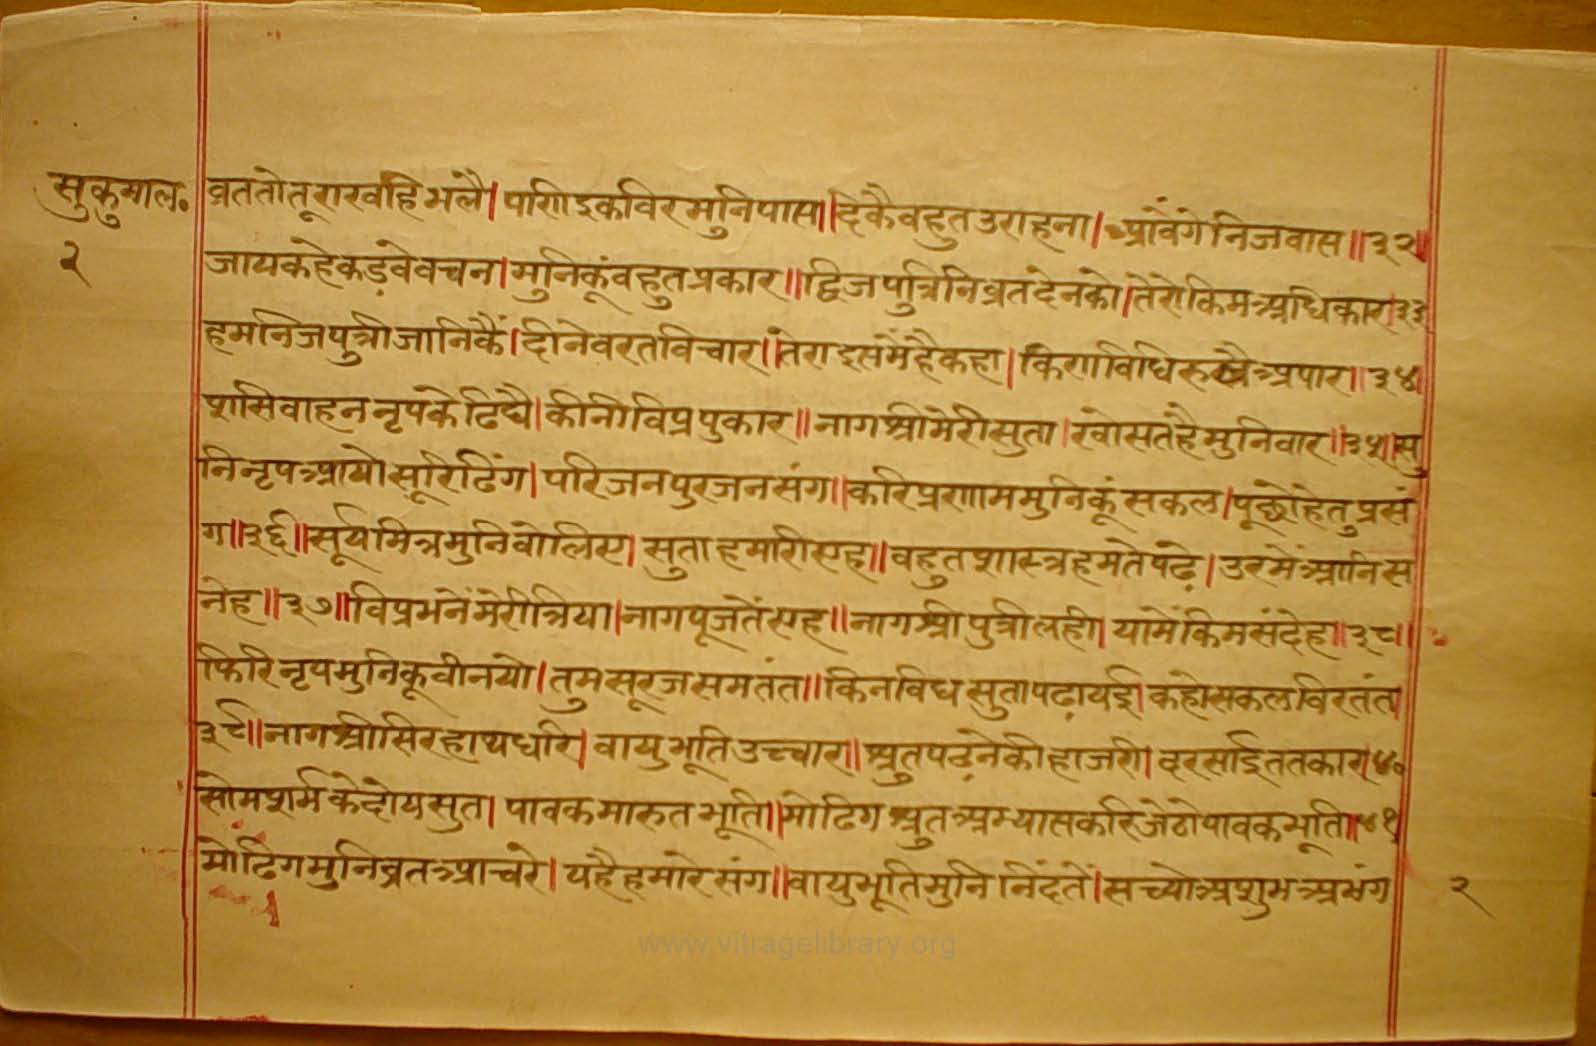 सुकुमाल॰
२
व्रततोतूराखहिभलै। पाणिइकविरमुनिपास॥ दिकैवहुतउराहना। आवैंगेनिजवास॥३२॥
जायकहेकड़वेवचन। मुनिकूंवहुतप्रकार॥ द्विजपुत्रिनिव्रतदेनको। तेरोकिमअधिकार।३३
हमनिजपुत्रीजानिकैं। दीनेवरतविचार॥ तेराइसमेंहैकहा। किणविधिरुअपार॥३४॥
शसिवाहननृपकेढिघै। कीनीविप्रपुकार॥ नागश्रीमेरीसुता। खोसतहैमुनिवार॥३५॥सु
निनृपआयोसूरिढिंग। परिजनपुरजनसंग॥ करिप्रणाममुनिकूंसकल। पूछोहेतुप्रसं
ग॥३६॥ सूर्यमित्रमुनिवोलिए। सुताहमारीएह॥ वहुतशास्त्रहमतेपढे़। उरमेंआनिस
नेह॥३७॥ विप्रभनेंमेरीत्रिया। नागपूजतेंएह॥ नागश्रीपुत्रीलही। यामेंकिमसंदेह॥३८॥
फिरिनृपमुनिकूवीनयो। तुमसूरजसमतंत॥ किनविधसुतापढा़यई। कहोसकलविरतंत
३९॥ नागश्रीसिरहाथधरि। वायुभूतिउच्चार॥ श्रुतपढ़नेकीहाजरी। दरसाईततकार।४०
सोमशर्मकेदोयसुत। पावकमारुतभूति॥ मोढिगश्रुतअभ्यासकरि जेठोपावकभूति॥४१
मोढिगमुनिव्रतआचरे। यहैहमारेसंग॥ वायुभूतिमुनिनिंदतें। सच्योअशुभअभंग
२
www.vitragelibrary.org